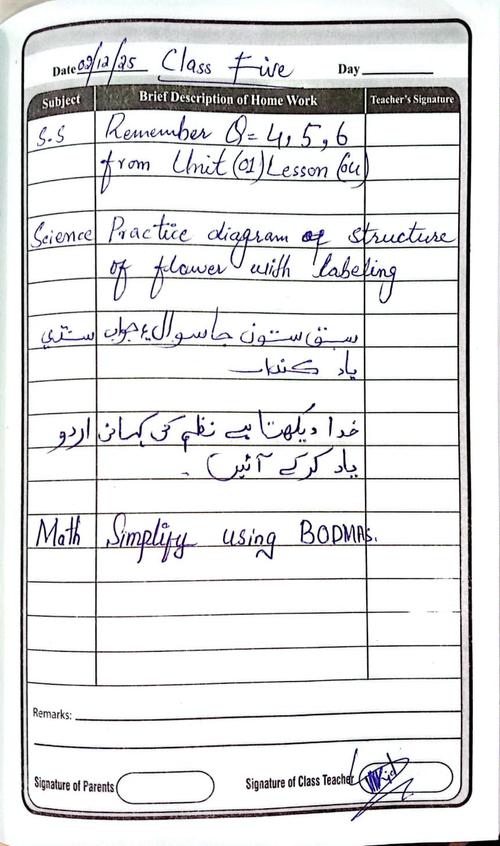 Date 02/12/25 Class Five Day
Subject Brief Description of Home Work Teacher's Signature
S.S Remember Q= 4, 5, 6
from Unit (01) Lesson (04)
Science Practice diagram of structure
of flower with labeling
سنڌي سبق ستون جا سوال ۽ جواب
ياد ڪندا
اردو خدا دیکھتا ہے نظم کی کہانی
یاد کرکے آئیں۔
Math Simplify using BODMAS.
Remarks:
Signature of Parents Signature of Class Teacher